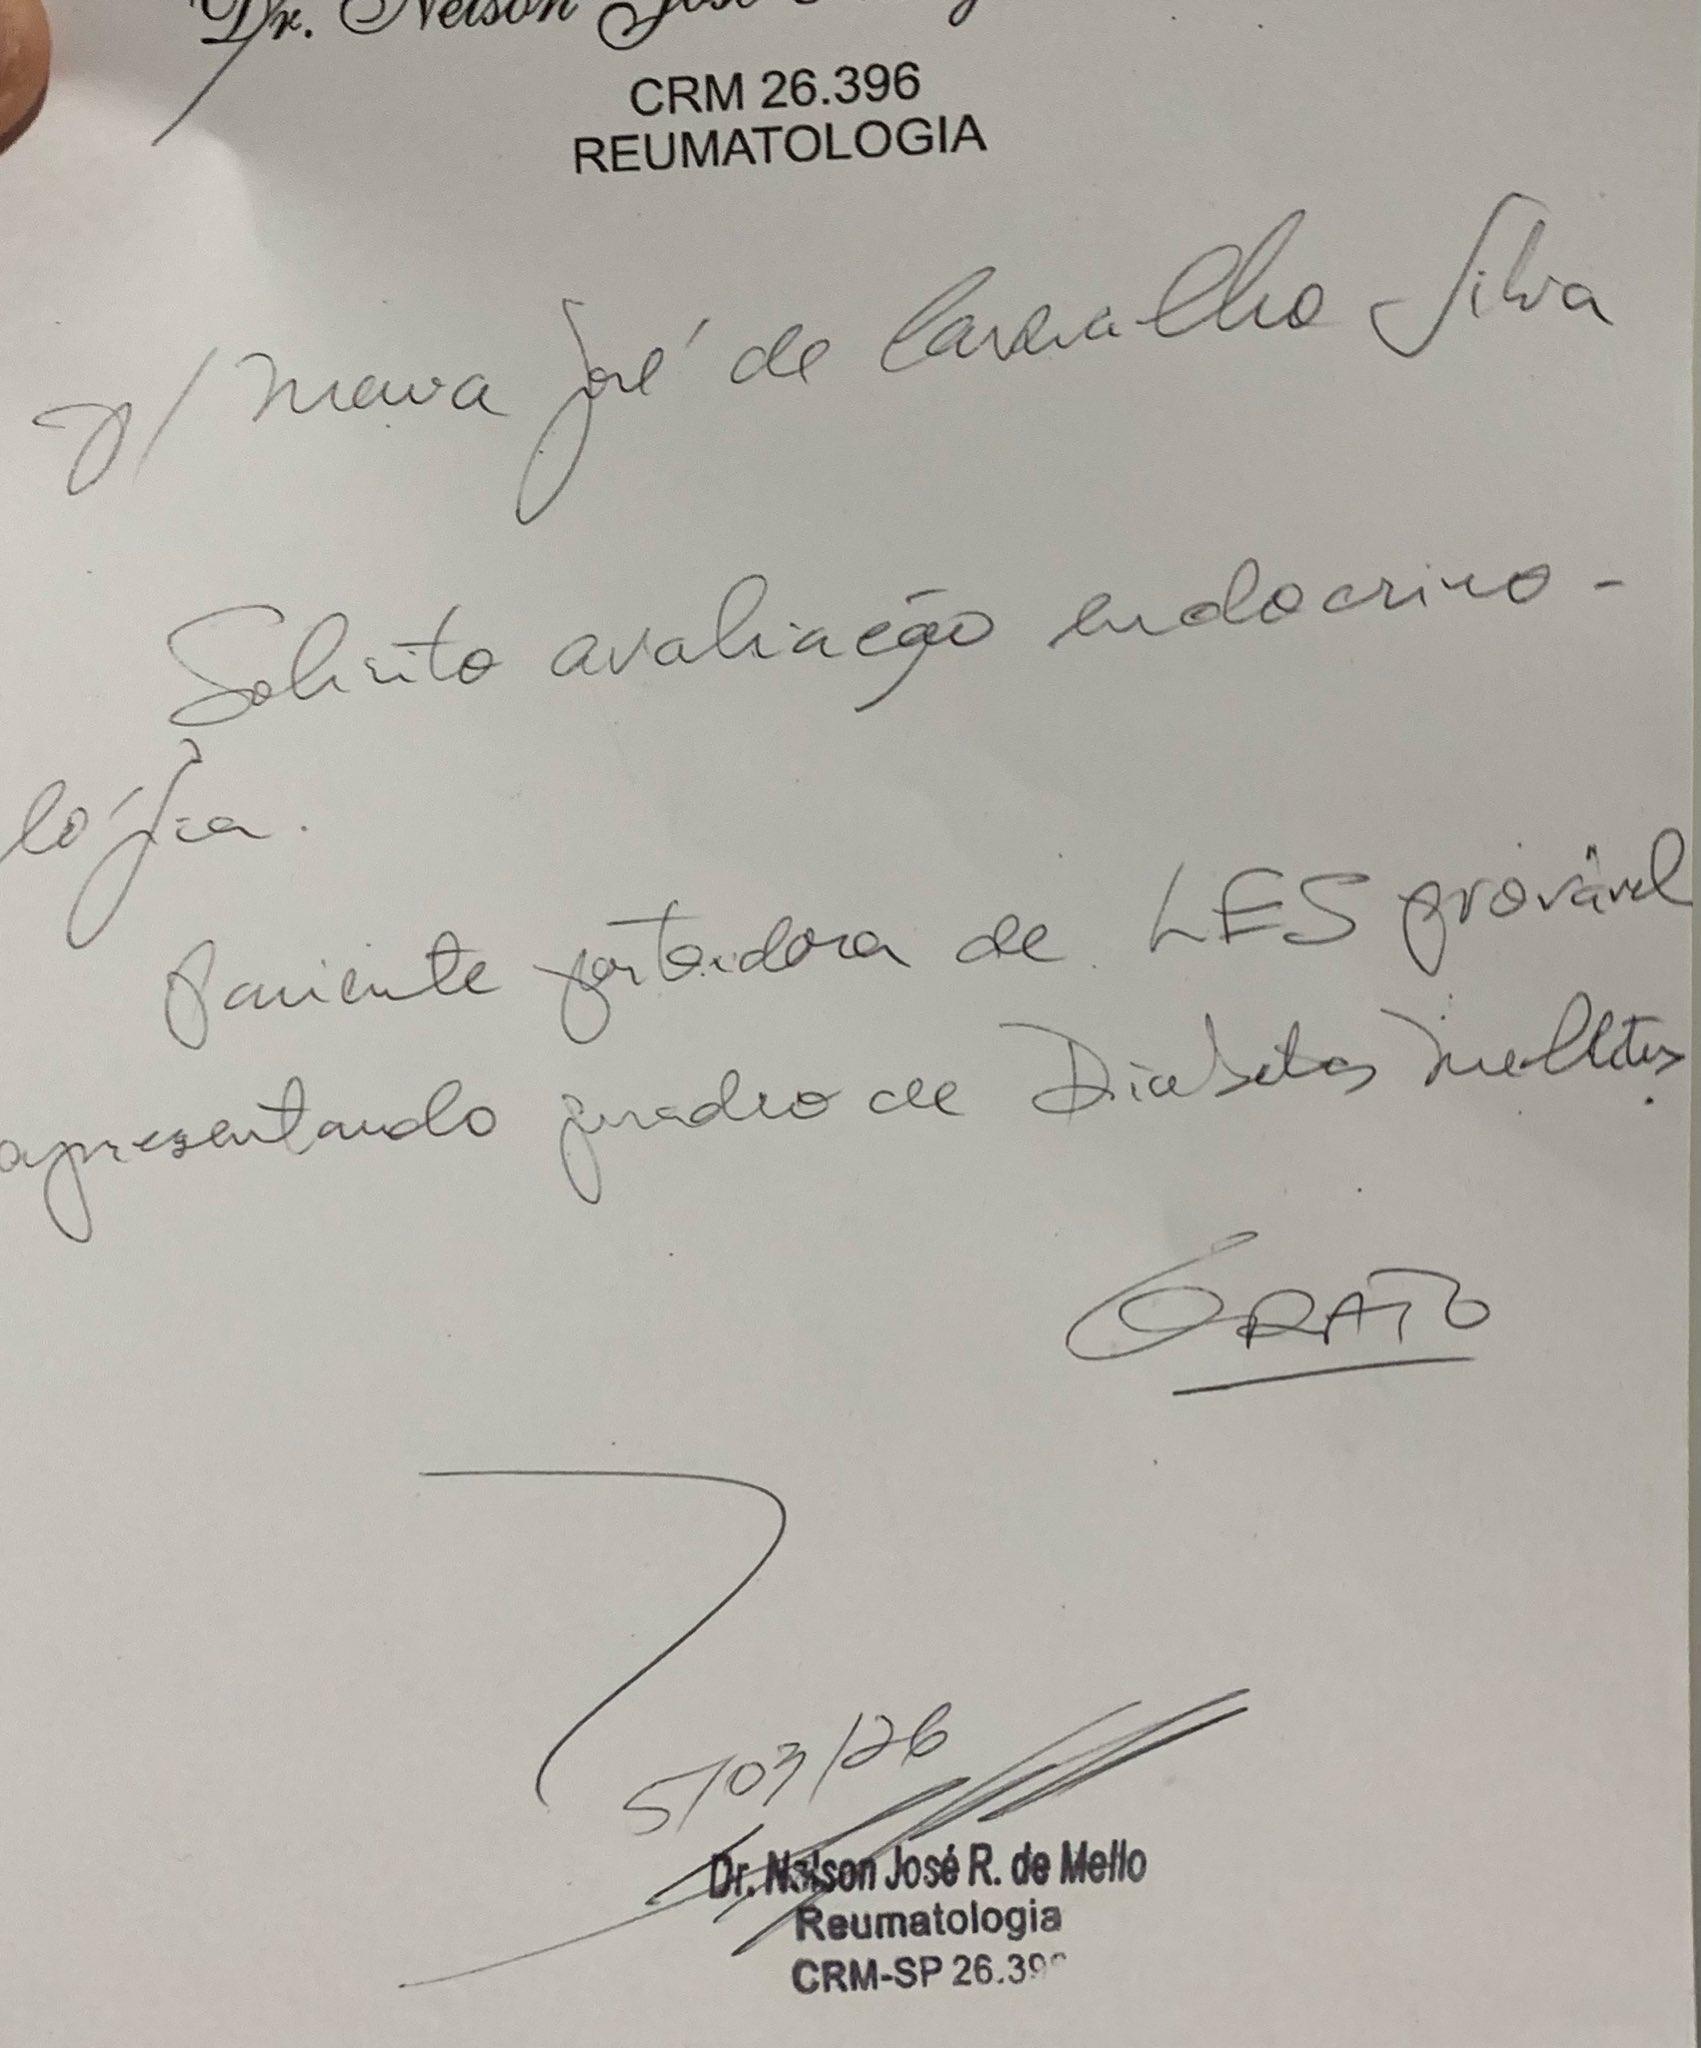 Dr. Nelson José
CRM 26.396
REUMATOLOGIA
p/ Maria José de Carvalho Silva
Solicito avaliação endocrino-
lógica.
Paciente portadora de LES provável
apresentando quadro de Diabetes Mellitus.
GRATO
5/03/26
Dr. Nelson José R. de Mello
Reumatologia
CRM-SP 26.396